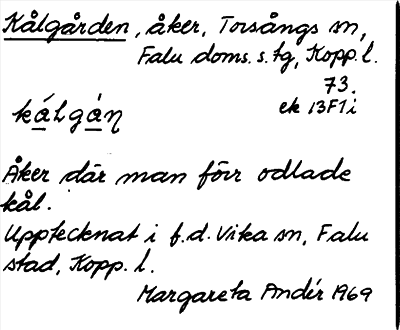 Kålgården, åker, Torsångs sn,
Falu doms. s. tg, Kopp. l.
73.
ek 13F1i
kálgàn̥
Åker där man förr odlade
kål.
Upptecknat i f.d. Vika sn, Falu
stad, Kopp. l.
Margareta Andér 1969